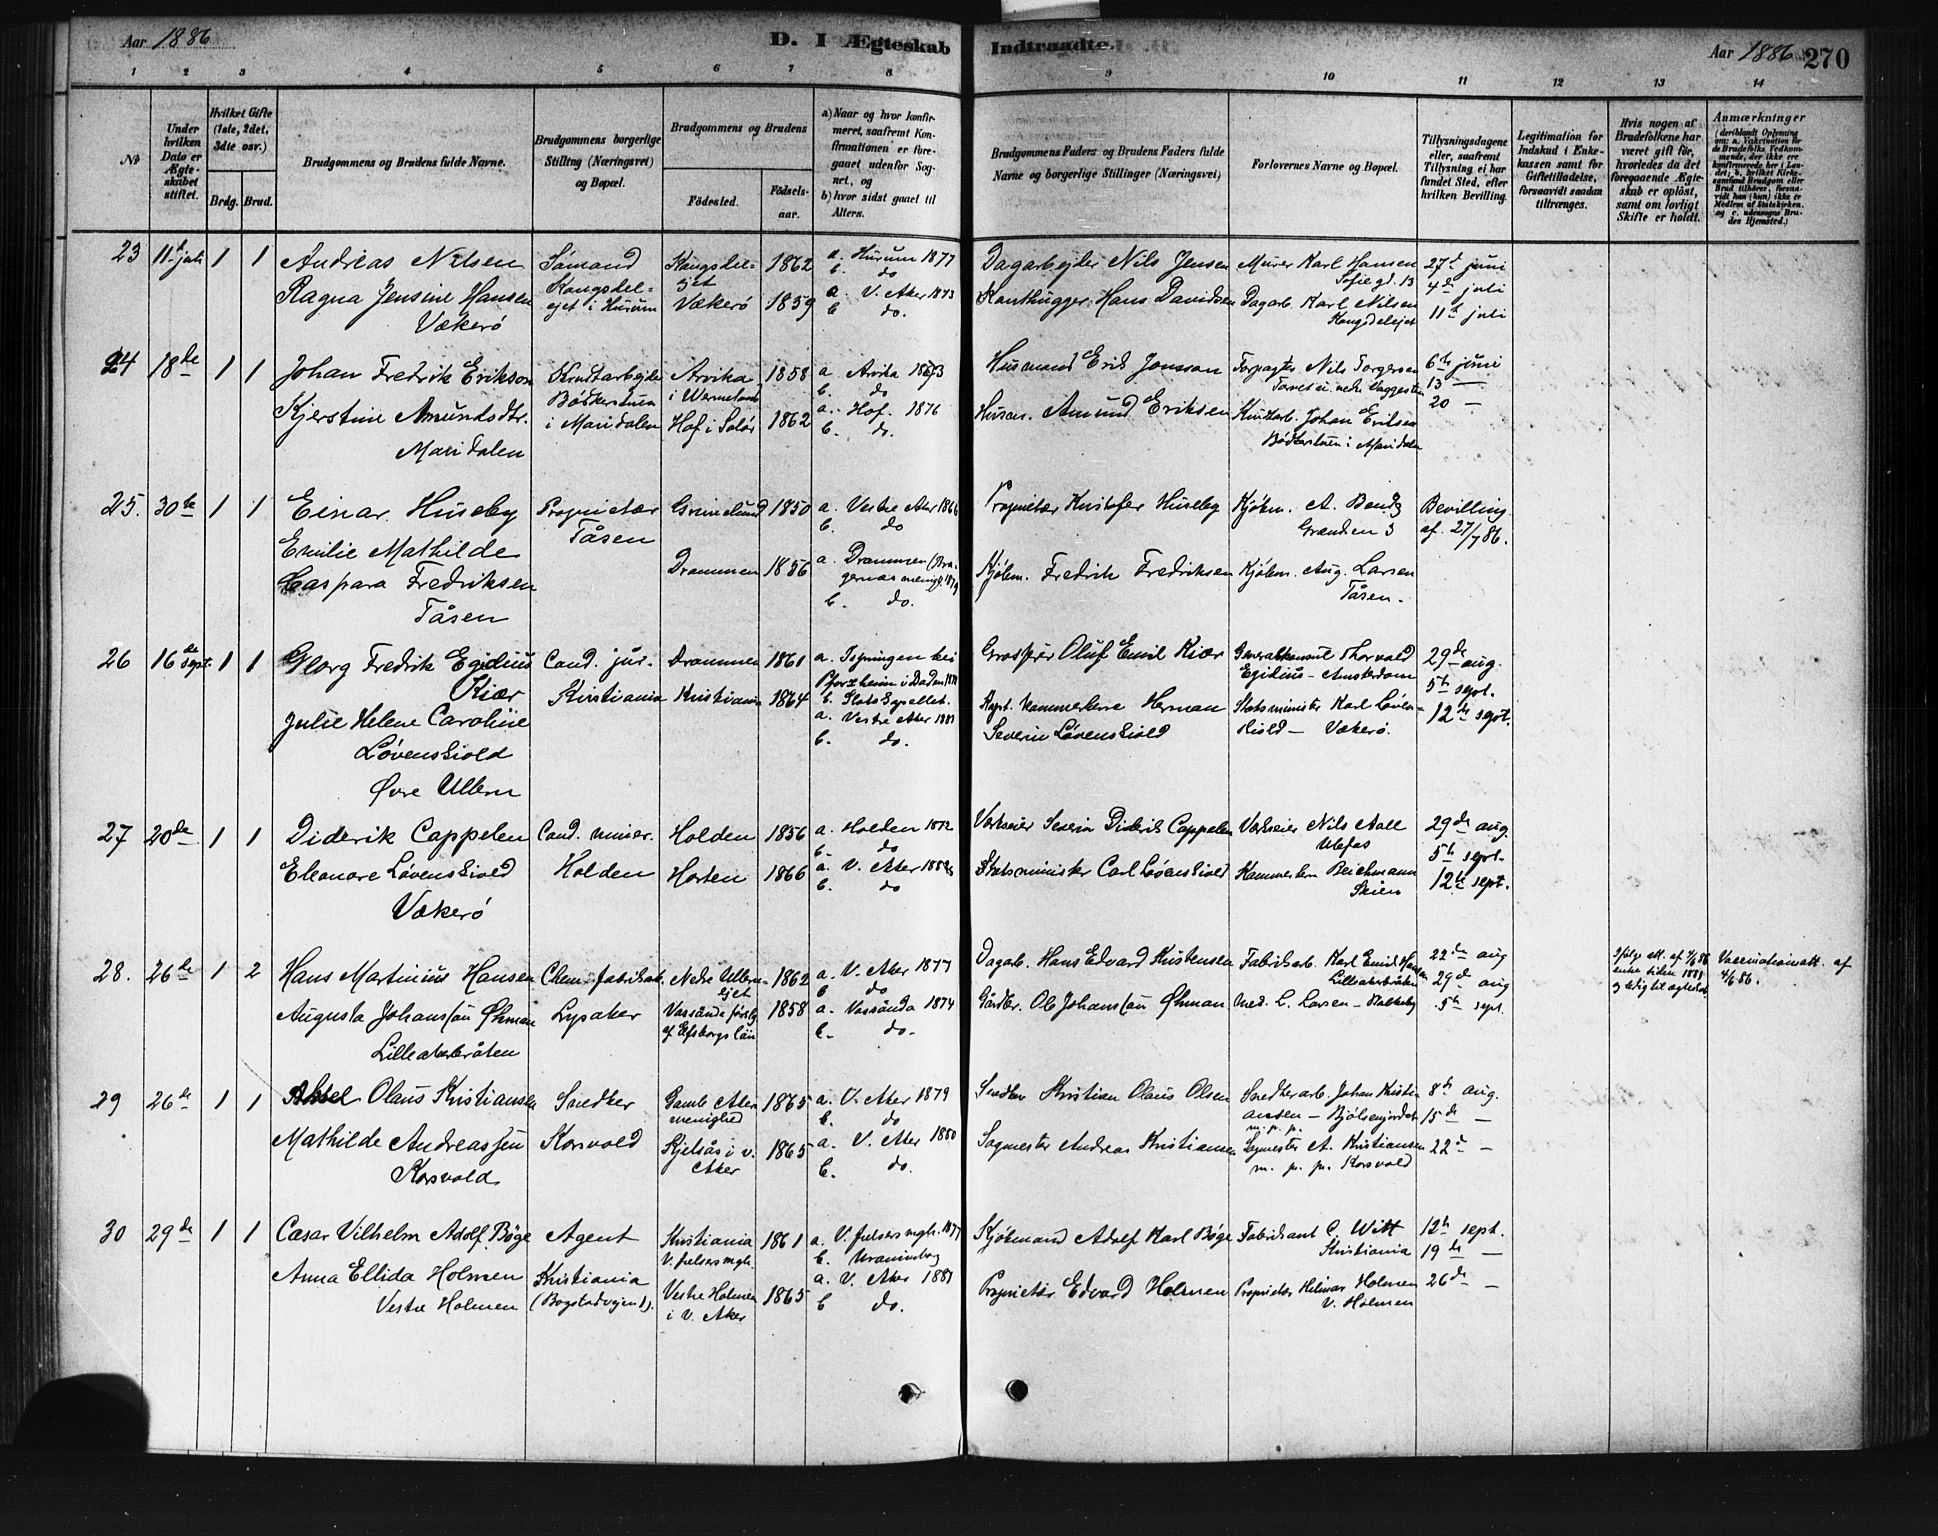 Aar 1886
D. I Ægteskab Indtraadte.
Aar 1886 270
1 2 3 4 5 6 7 8 9 10 11 12 13 14
No
Under hvilken Dato er Ægteskabet stiftet.
Hvilket Gifte (1ste, 2det, 3die osv.)
Brdg. Brud.
Brudgommens og Brudens fulde Navne.
Brudgommens borgerlige Stilling (Næringsvei) og Bopæl.
Brudgommens og Brudens
Fødested. Fødselsaar.
a) Naar og hvor konfirmeret, saafremt Konfirmationen er foregaaet udenfor Sognet, og
b) hvor sidst gaaet til Alters.
Brudgommens Faders og Brudens Faders fulde Navne og borgerlige Stillinger (Næringsvei)
Forlovernes Navne og Bopæl.
Tillysningsdagene eller, saafremt Tillysning ei har fundet Sted, efter hvilken Bevilling.
Legitimation for Indskud i Enkekassen samt for Giftetilladelse, forsaavidt saadan tiltrænges.
Hvis nogen af Brudefolkene har været gift før, hvorledes da det foregaaende Ægteskab er opløst, samt om lovligt Skifte er holdt.
Anmærkninger
23 11te juli 1 1
Andreas Nilsen
Ragna Jensine Hansen
Vækerø
Sømand
Kongsdelejet i Hurum
Kongsdelejet 1862
Vækerø 1859
a. Hurum 1877
b. do
a. V. Aker 1873
b. do.
Dagarbejder Nils Jensen
Kanthugger Hans Davidsen
Murer Karl Hansen
Sofie gd. 13
Dagarb. Karl Nilsen
Kongsdelejet
27de juni
4de juli
11te juli
24 18de 1 1
Johan Fredrik Erikson
Kjerstine Amundsdtr.
Maridalen
Krudtarbejder
Bødkerstuen
i Maridalen
Arvika
i Wermeland 1858
Hof i Solør 1862
a. Arvika 1873
b. do
a. Hof. 1876
b. do.
Husmand Erik Jonsson
Husm. Amund Eriksen
Forpagter Nils Torgersen
Krudtarb. Johan Eriksen
Bødkerstuen i Maridalen
6te juni
13 —
20 —
25. 30te 1 1
Einar Huseby
Emilie Mathilde
Caspara Fredriksen
Tåsen
Proprietær
Tåsen
Grimelund 1850
Drammen 1856
a. Vestre Aker 1866
b. do
a. Drammen (Bragernes menigh. 1879
b. do.
Proprietær Kristofer Huseby
Kjøbm. Fredrik Fredriksen
Kjøbm. A. Bendz
Grændsen 3
Kjøbm. Aug. Larsen
Tåsen.
Bevilling
af 27/7 86.
26 16de sept. 1 1
Georg Fredrik Egidius
Kiær
Julie Helene Caroline
Løvenskiold
Øvre Ullern
Cand. jur.
Kristiania
Drammen 1861
Kristiania 1864
a. Ispringen bei
Pforzheim i Baden
b. Slotskapellet.
a. Vestre Aker 1881
b. do.
Grosserer Oluf Emil Kiær
Kapt. Kammerherre Herman
Severin Løvenskiold
Generalkonsul Thorvald
Egidius — Amsterdam
Statsminister Karl Løvenskiold — Vækerø.
29de aug.
5te sept.
12te sept.
27 20de 1 1
Diderik Cappelen
Eleonore Løvenskiold
Vækerø
Cand. miner.
Holden
Holden 1856
Horten 1866
a. Holden 1872
b. do
a. V. Aker
b. do
Værkseier Severin Diderik Cappelen
Statsminister Carl Løvenskiold
Værkseier Nils Aall
Ulefos
Kammerherre Beichmann
Skien
29de aug.
5te sept.
12te sept.
28. 26de 1 2
Hans Martinius Hansen
Augusta Johansson Øhman
Lilleakerbråten
Chem. fabrikarb.
Lysaker
Nedre Ullernejet 1862
Vassända
af Elfsborgs Län 1858
a. V. Aker 1877
b. do
a. Vassända 1874
b. do.
Dagarb. Hans Edvard Kristensen
Gårdbr. Ole Johansson Øhman
Fabrikarb. Karl Emil Hansen
Lilleakerbråten
Med. L. Larsen —
22de aug
29de aug
5te sept.
Ifølge att. af
enke siden 1881
og ledig til ægteskab
Vaccinationsatt. af
4/6 86.
29 26de 1 1
Aksel Olaus Kristiansen
Mathilde Andreassen
Korsvold
Snedker
Korsvold
Gamle Aker
menighed 1865
Kjelsås i V.
Aker 1865
a. V. Aker 1879
b. do
a. V. Aker 1880
b. do.
Snedker Kristian Olaus Olsen
Sagmester Andreas Kristiansen
Snedkerarb. Johan Kristiansen — Bjølsenjordet
m. p. p.
Sagmester A. Kristiansen
m. p. p. Korsvold
8de aug.
15de —
22de —
30 29de 1 1
Cæsar Vilhelm Adolf Bøge
Anna Ellida Holmen
Vestre Holmen
Agent
Kristiania
(Bogstadvejen 1).
Kristiania
V. frelsers mgh. 1861
Vestre Holmen
i V. Aker 1865
a. V. frelsers mgh. 1877
b. Uranienborg
a. V. Aker 1881
b. do.
Kjøbmand Adolf Karl Bøge
Proprietær Edvard Holmen
Fabrikant C. Witt
Kristiania
Proprietær Hilmar Holmen
V. Holmen
12te sept.
19de —
26de —